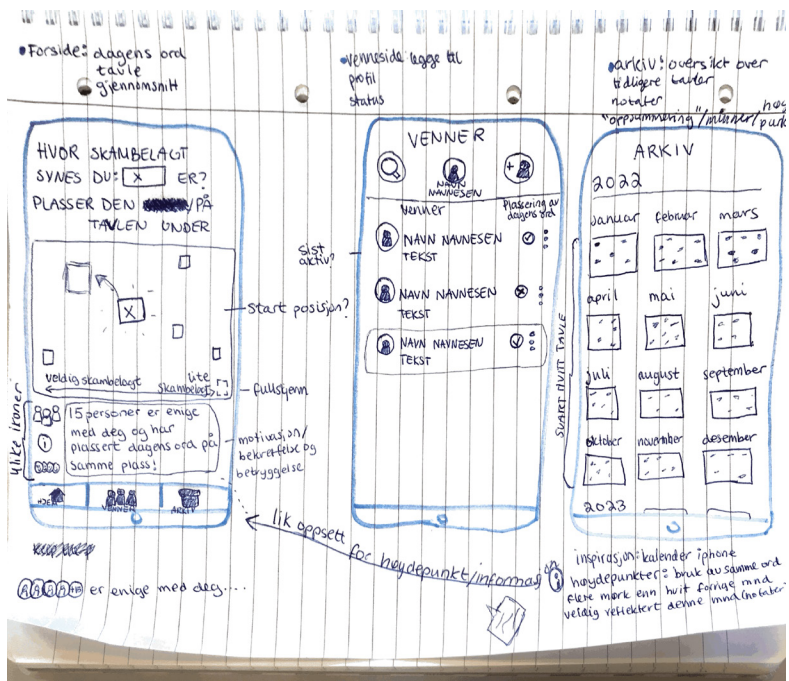 •Forside: dagens ord
tavle
gjennomsnitt
•venneside legge til
profil
status
•arkiv: oversikt over
tidligere tavler
notater
"oppsummering"/minner/
HVOR SKAMBELAGT
SYNES DU: X ER?
PLASSER DEN /PÅ
TAVLEN UNDER
X
veldig skambelagt
lite
skambelagt
Start posisjon?
fullskjerm
ulike ikoner
15 personer er enige
med deg og har
plassert dagens ord på
samme plass!
motivasjon/
bekreftelse og
betryggelse
HJEM
VENNER
ARKIV
er enige med deg....
VENNER
NAVN
NAVNESEN
venner
Plassering av
dagens ord
sist
aktiv?
NAVN NAVNESEN
TEKST
NAVN NAVNESEN
TEKST
NAVN NAVNESEN
TEKST
lik oppsett
for høydepunkt/informasjon
ARKIV
2022
januar februar mars
april mai juni
juli august september
oktober november desember
2023
SVART HVITT TAVLE
inspirasjon: kalender iphone
høydepunkter: bruk av samme ord
flere mørk enn hvit forrige mnd
veldig reflektert denne mnd (notater